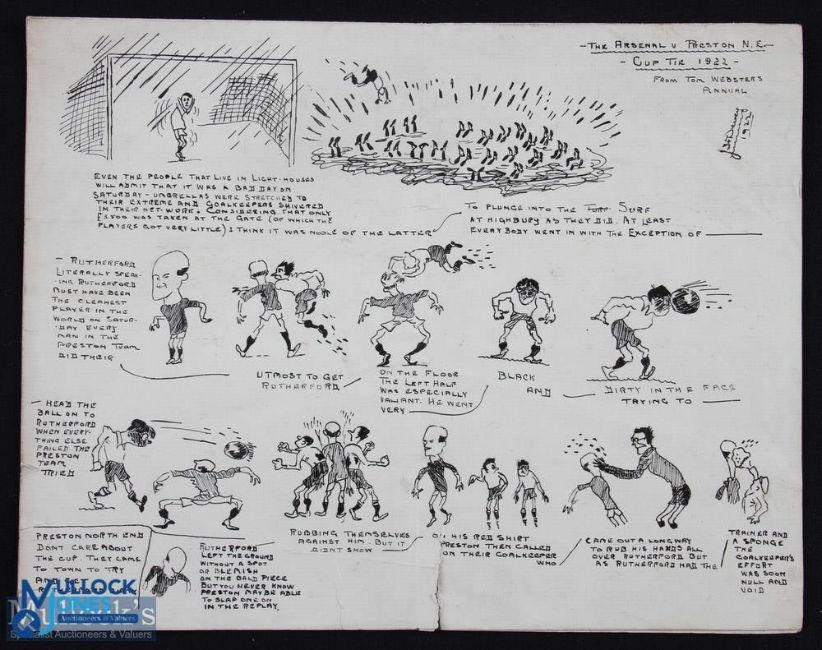 - THE ARSENAL V PRESTON N.E -
- CUP TIE 1922 -
FROM TOM WEBSTER'S
ANNUAL
1922
EVEN THE PEOPLE THAT LIVE IN LIGHT-HOUSES
WILL ADMIT THAT IT WAS A BAD DAY ON
SATURDAY - UMBRELLAS WERE STRETCHED TO
THEIR EXTREME AND GOALKEEPERS SHIVERED
IN THEIR NET-WORK. CONSIDERING THAT ONLY
WAS TAKEN AT THE GATE (OF WHICH THE
PLAYERS GOT VERY LITTLE) I THINK IT WAS NOBLE OF THE LATTER
TO PLUNGE INTO THE SURF
AT HIGHBURY AS THEY DID. AT LEAST
EVERYBODY WENT IN WITH THE EXCEPTION OF
- RUTHERFORD
LITERALLY SPEAK-
-ING RUTHERFORD
MUST HAVE BEEN
THE CLEANEST
PLAYER IN THE
WORLD ON SATUR-
-DAY EVERY
MAN IN THE
PRESTON TEAM
DID THEIR
UTMOST TO GET
RUTHERFORD
ON THE FLOOR
THE LEFT HALF
WAS ESPECIALLY
VALIANT. HE WENT
VERY
BLACK
AND
DIRTY IN THE FACE
TRYING TO
- HEAD THE
BALL ON TO
RUTHERFORD
WHEN EVERY-
THING ELSE
FAILED THE
PRESTON
TEAM
TRIED
RUBBING THEMSELVES
AGAINST HIM - BUT IT
DIDNT SHOW
ON HIS RED SHIRT
PRESTON THEN CALLED
ON THEIR GOALKEEPER
WHO
CAME OUT A LONG WAY
TO RUB HIS HANDS ALL
OVER RUTHERFORD BUT
AS RUTHERFORD HAD THE
TRAINER AND
A SPONGE
THE
GOALKEEPER'S
EFFORT
WAS SOON
NULL AND
VOID
PRESTON NORTH END
DONT CARE ABOUT
THE CUP. THEY CAME
TO TOWN TO TRY
AND GET
RUTHERFORD LEFT THE GROUND
WITHOUT A SPOT
OR BLEMISH
ON THE BALD PIECE
BUT YOU NEVER KNOW
PRESTON MAY BE ABLE
TO SLAP ONE ON
IN THE REPLAY.
MULLOCK
JONES
Auctioneers & Valuers
Mullock's
Specialist Auctioneers & Valuers